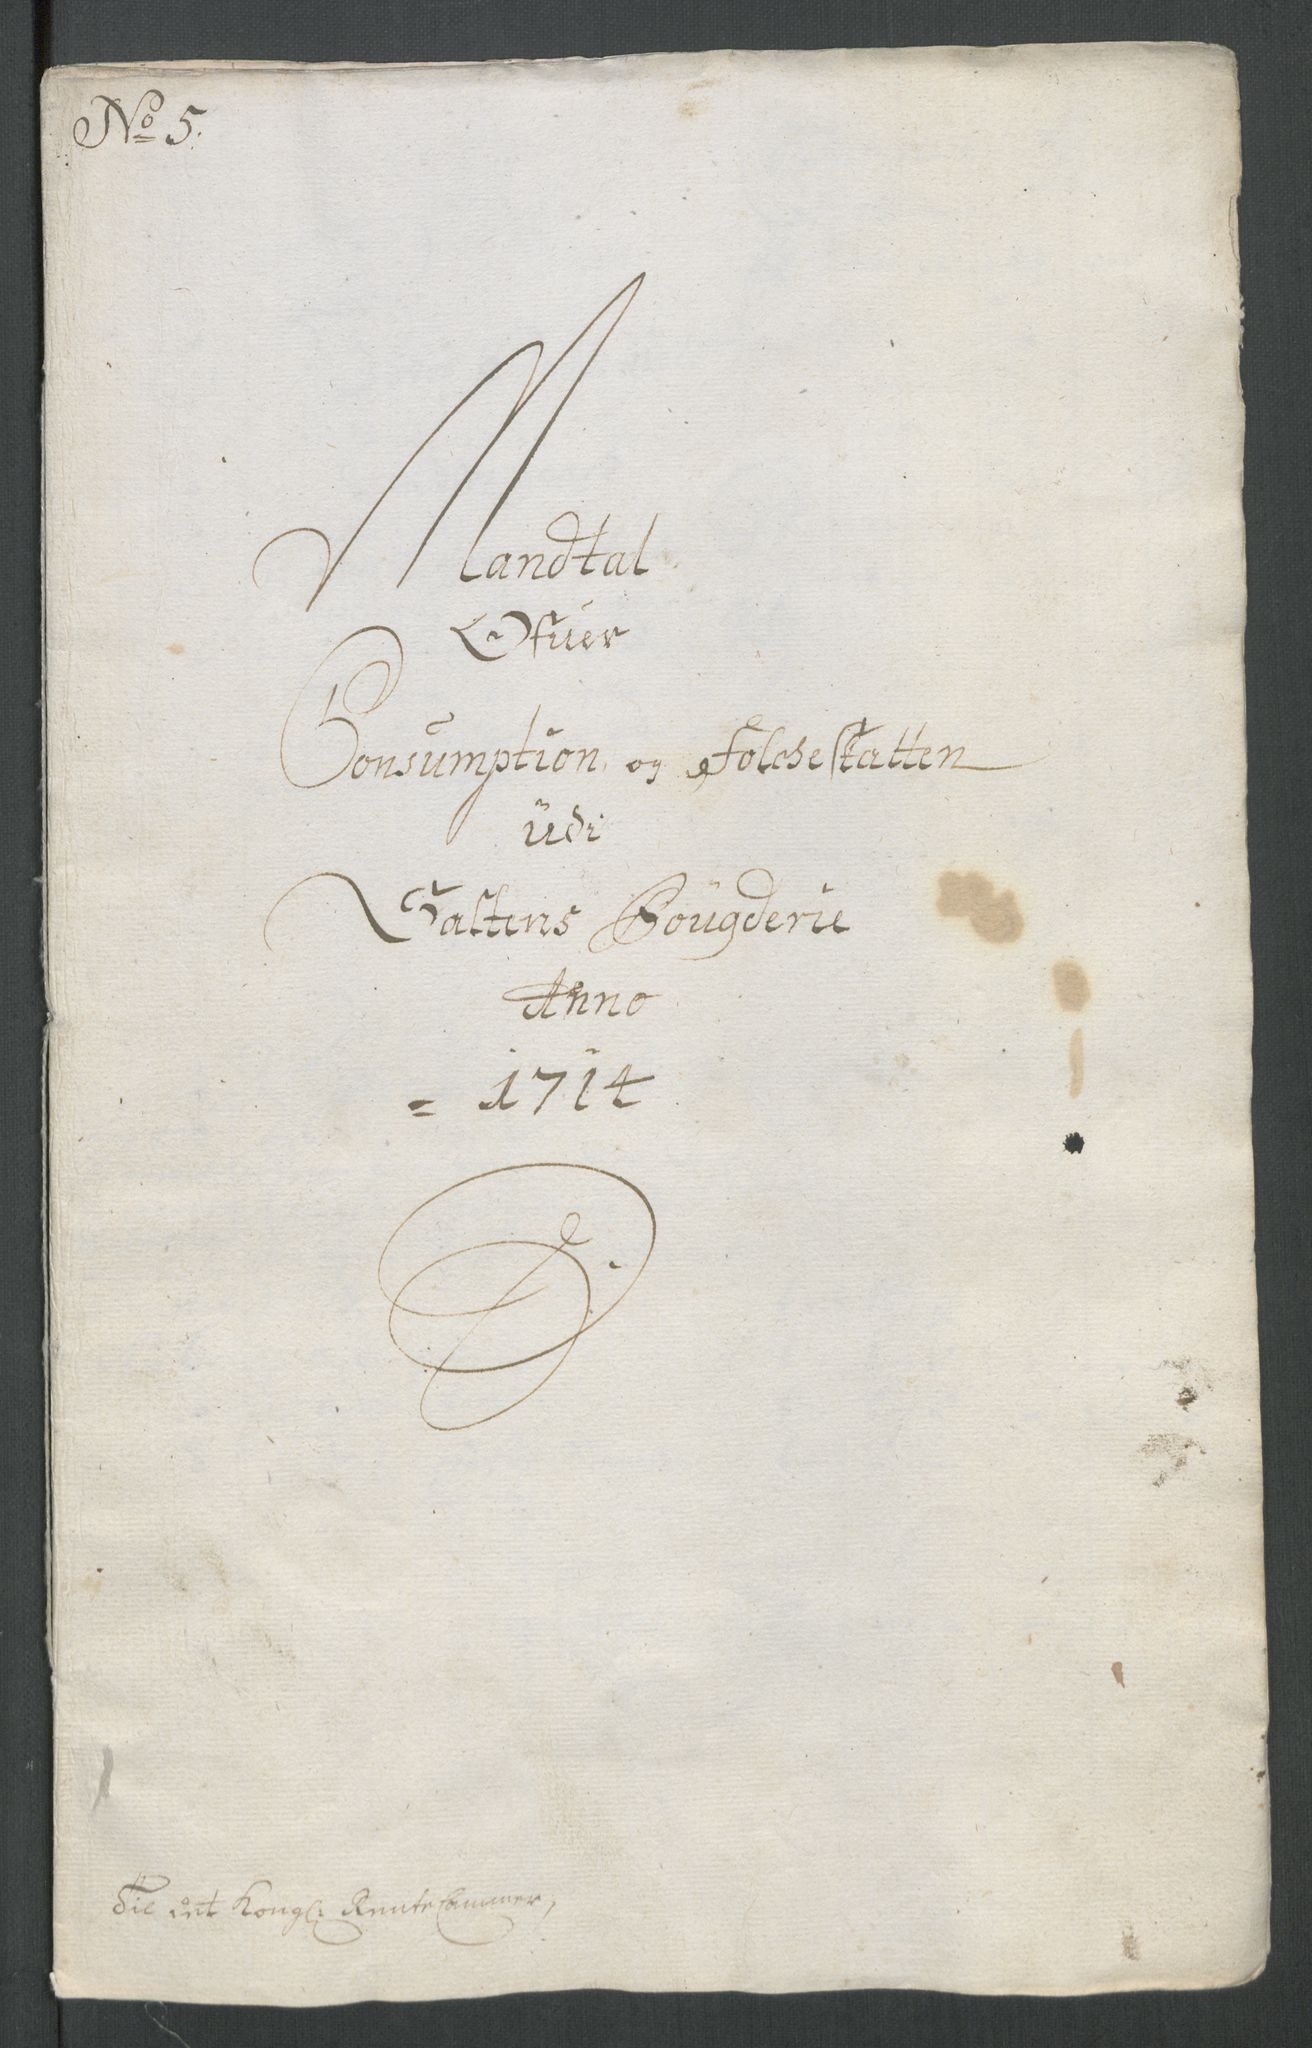 No 5.
Mandtal
Ofuer
Consumption og Folcheskatten
udi
Saltens Fougderie
Anno
= 1714
Til det Kongl: Rente Cammer,